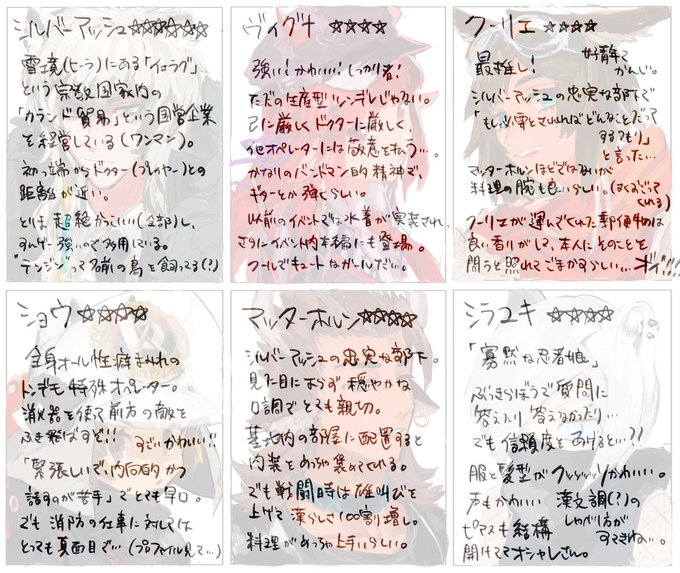 シルバーアッシュ☆☆☆☆☆☆
雪境(ヒーラ)にある「イェラグ」
という宗教国家内の
「カランド貿易」という国営企業
を経営している(ワンマン)。
初っ端からドクター(プレイヤー)との
距離が近い。
とにかく超絶かっこいい(全部)し、
すんげー強いので多用している。
"テンジン"って名前の鳥を飼ってる(?)
ヴィグナ ☆☆☆☆
強い!かわいい!しっかり者!
ただの生産型ツンデレじゃない。
己に厳しくドクターに厳しく、
他オペレーターには敬意を払う…。
かなりのバンドマン的精神で、
ギターとか弾くらしい。
以前のイベントでは水着が実装され、
さらにイベント内本編にも登場。
クールでキュートなガールだ…。
クーリエ ☆☆☆☆
最推し!
好青年て
かんじ。
シルバーアッシュの忠実な部下で
「もし必要とされればどんなことだって
するつもり」
と言った…
マッターホルンほどではないが
料理の腕も良いらしい。
クーリエが運んでくれた郵便物は
良い香りがして、本人にそのことを
問うと照れてごまかすらしい…
ショウ ☆☆☆☆
全身オール性癖まみれの
トンデモ特殊オペレーター。
消火器を使って前方の敵を
ふき飛ばす!! すごいかわいい!!
「緊張しいで、内向的かつ
話すのが苦手」でとても早口。
でも消防の仕事に対しては
とっても真面目で…(プロファイル見て…)
マッターホルン☆☆☆☆
シルバーアッシュの忠実な部下。
見た目によらず穏やかな
口調でとても親切。
基地内の部屋に配置すると
内装をめっちゃ褒めてくれる。
でも戦闘時は雄叫びを
上げて漢らしさ100割増し。
料理がめっちゃ上手いらしい。
シラユキ ☆☆☆☆
「寡黙な忍者姫」
ぶっきらぼうで質問に
答えたり答えなかったり…
でも信頼度を上げると…??
服と髪型がクッッッソかわいい。
声もかわいい 漢文調(?)の
しゃべり方が
すてきね…。
ピアスも結構
開けててオシャレさん。